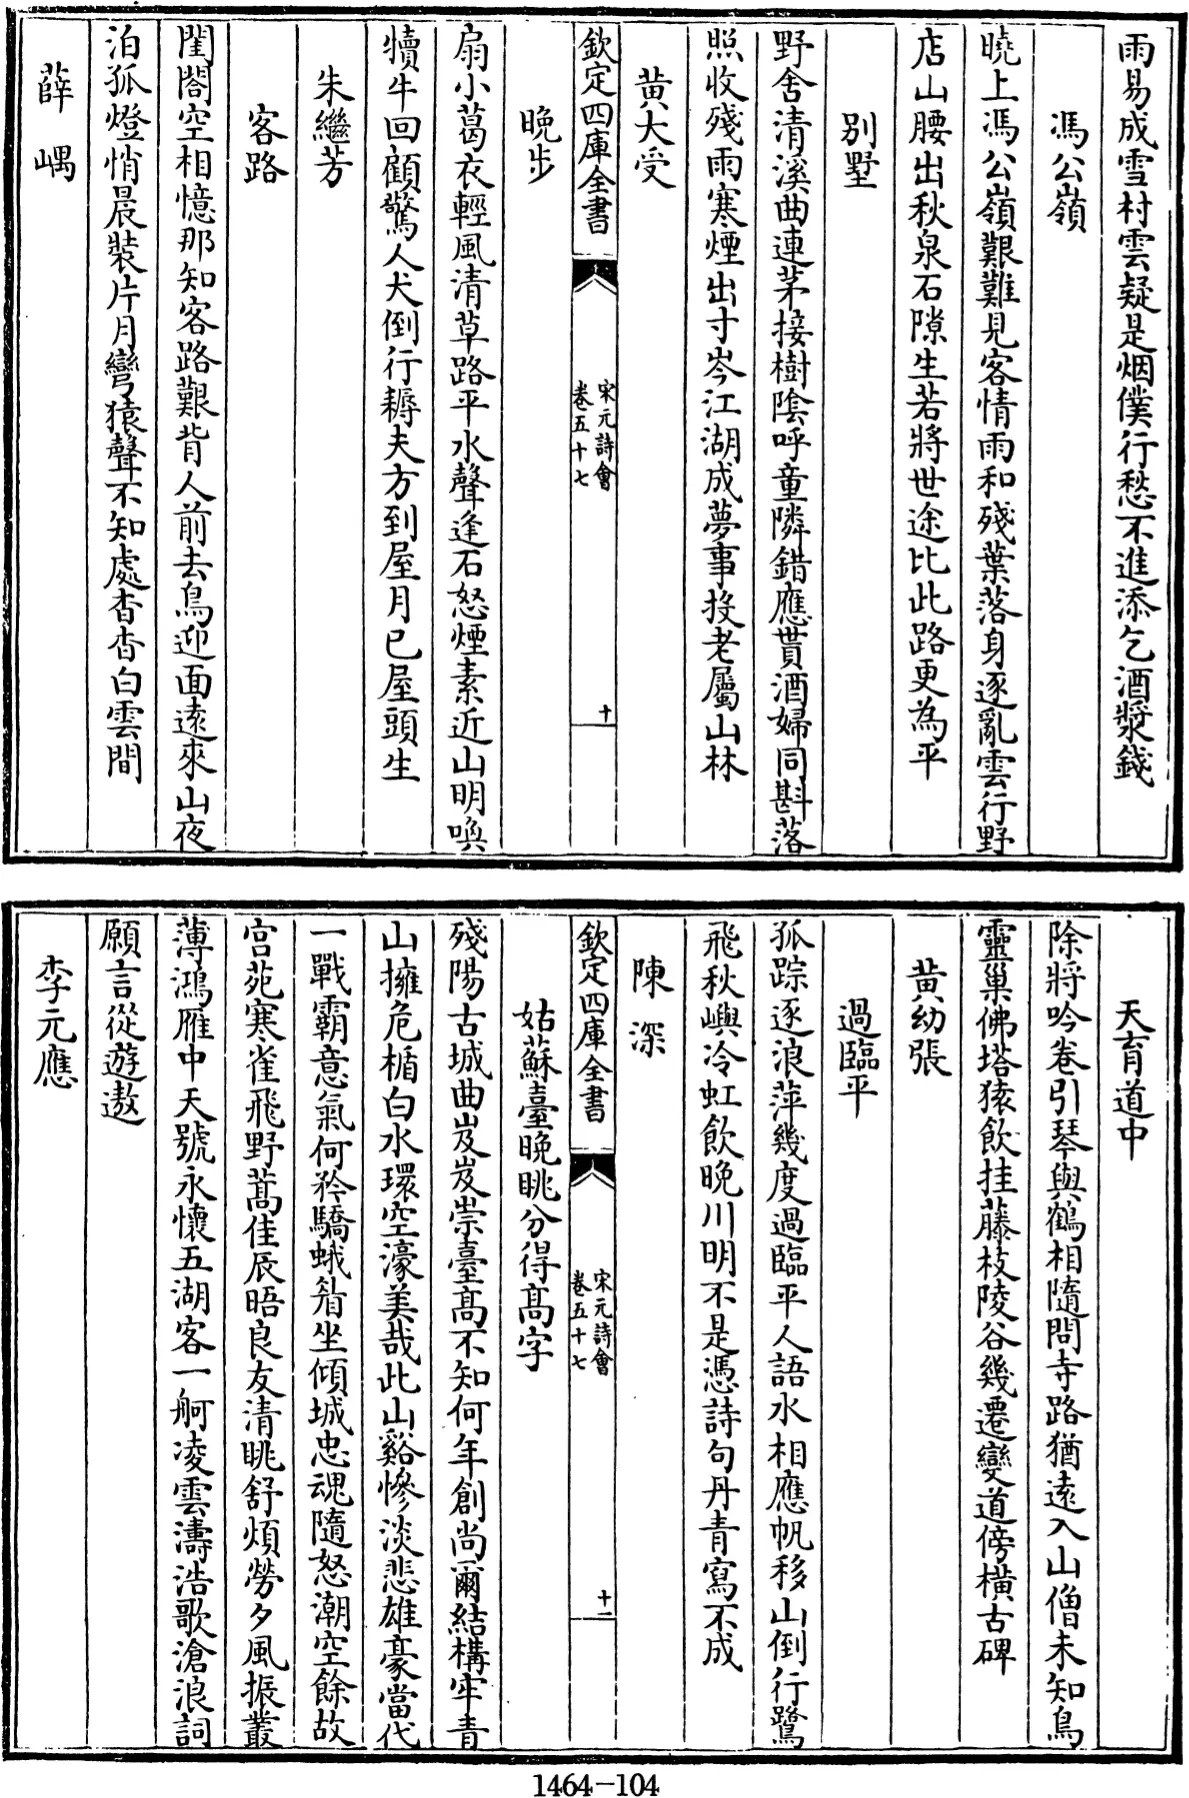 雨易成雪村雲疑是烟僕行愁不進添乞酒漿錢
馮公嶺
曉上馮公嶺艱難見客情雨和殘葉落身逐亂雲行野
店山腰出秋泉石隙生若將世途比此路更為平
别墅
野舍清溪曲連茅接樹陰呼童隣錯應貰酒婦同斟落
照收殘雨寒煙出寸岑江湖成夢事投老屬山林
黄大受
欽定四庫全書
宋元詩會
卷五十七
十
晩步
扇小葛衣輕風清草路平水聲逢石怒煙素近山明喚
犢牛回顧驚人犬倒行耨夫方到屋月已屋頭生
朱繼芳
客路
閨閣空相憶那知客路艱背人前去鳥迎面遠來山夜
泊孤燈悄晨裝片月彎猿聲不知處杳杳白雲間
薛嵎
天育道中
除將吟卷引琴與鶴相隨問寺路猶遠入山僧未知鳥
靈巢佛塔猿飲挂藤枝陵谷幾遷變道傍横古碑
黄幼張
過臨平
孤踪逐浪萍幾度過臨平人語水相應帆移山倒行鷺
飛秋嶼冷虹飲晩川明不是憑詩句丹青寫不成
陳深
欽定四庫全書
宋元詩會
卷五十七
十一
姑蘇臺晩眺分得髙字
殘陽古城曲岌岌崇臺髙不知何年創尚爾結構牢青
山擁危楯白水環空濠美哉此山谿慘淡悲雄豪當代
一戰霸意氣何矜驕蛾眉坐傾城忠魂隨怒潮空餘故
宫苑寒雀飛野蒿佳辰晤良友清眺舒煩勞夕風振叢
薄鴻雁中天號永懷五湖客一舸凌雲濤浩歌滄浪詞
願言從遊遨
李元應
1464-104